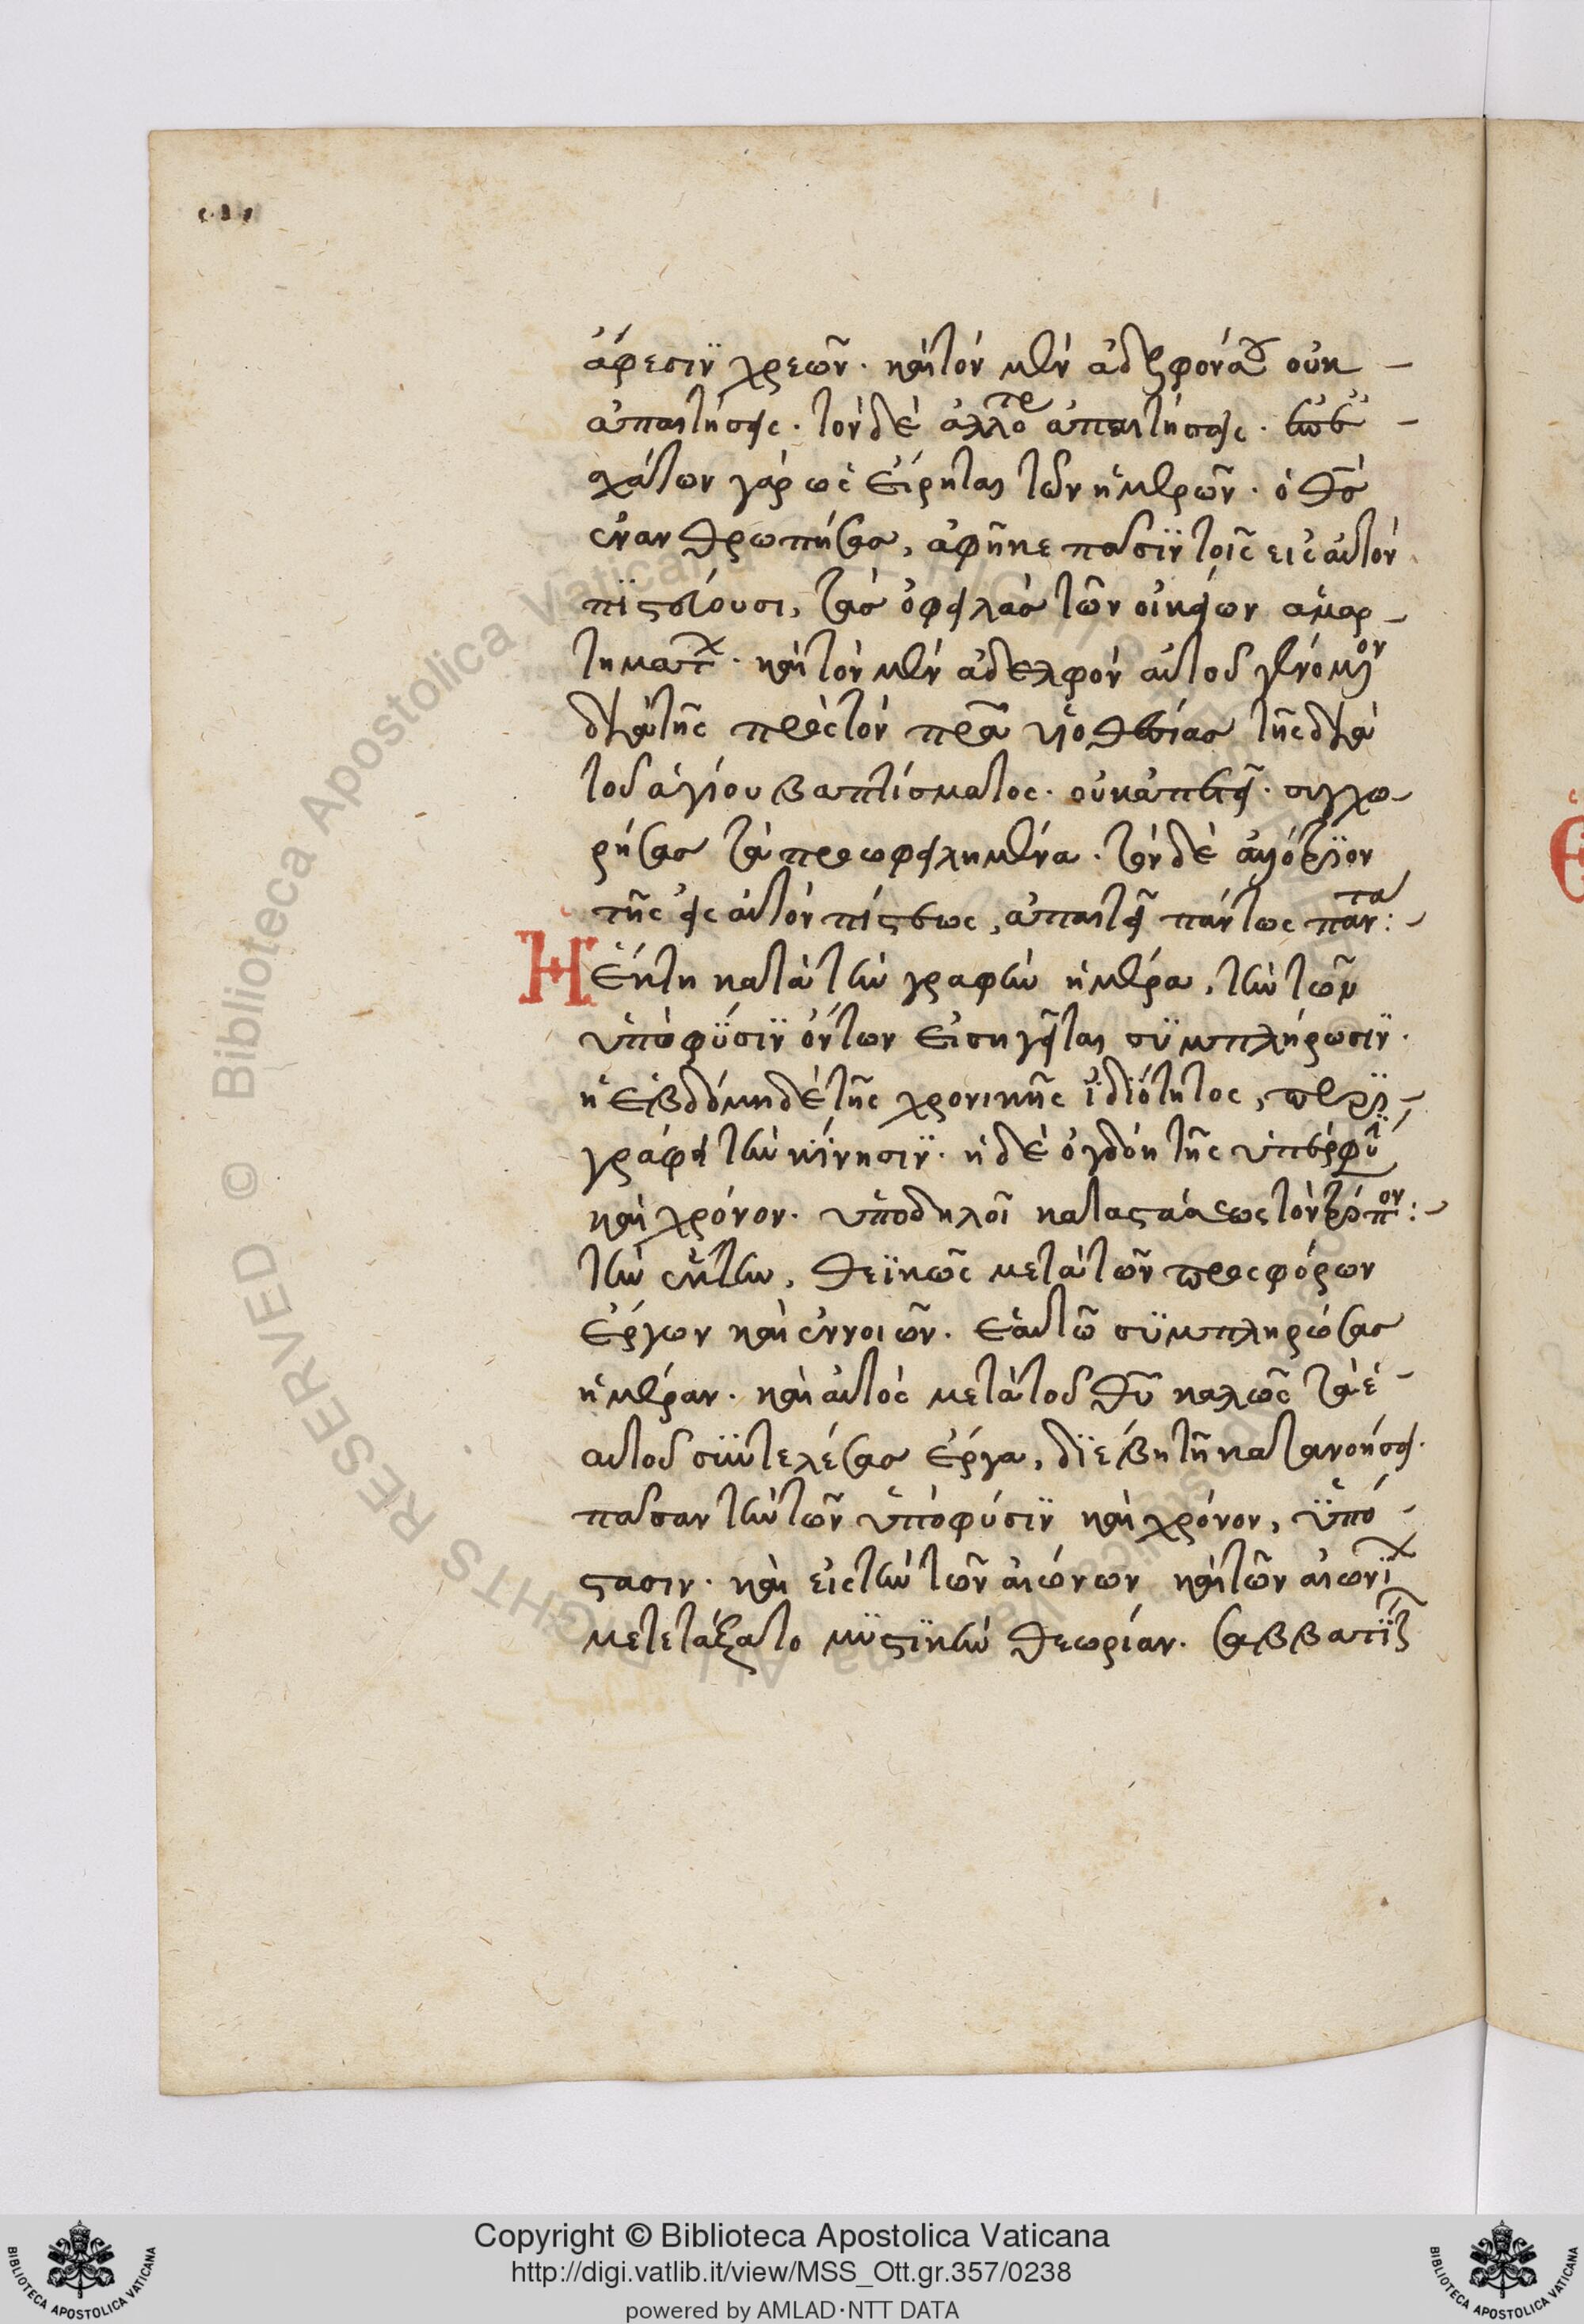 ἄφεσιν χρεῶν. καὶ τὸν μὲν ἀδελφόν σου οὐκ
ἀπαιτήσεις. τὸν δὲ ἀλλότριον ἀπαιτήσεις. ἐπ' ἐσ
χάτων γὰρ ὡς εἴρηται τῶν ἡμερῶν. ὁ θς
ἐνανθρωπήσας, ἀφῆκε πᾶσιν τοῖς εἰς αὐτὸν
πιστεύουσι, τὰς ὀφειλὰς τῶν οἰκείων ἁμαρ
τημάτων. καὶ τὸν μὲν ἀδελφὸν αὐτοῦ γενόμενον
διὰ τῆς πρὸς τὸν πρα υἱοθεσίας τῆς διὰ
τοῦ ἁγίου βαπτίσματος. οὐκ ἀπαιτεῖ. συγχω
ρήσας τὰ προωφειλημένα. τὸν δὲ ἀλλότριον
τῆς εἰς αὐτὸν πίστεως, ἀπαιτεῖ πάντως πάντα:
Ἡ ἕκτη κατὰ τὴν γραφὴν ἡμέρα, τὴν τῶν
ὑπὸ φύσιν ὄντων εἰσηγεῖται συμπλήρωσιν.
ἡ ἑβδόμη δὲ τῆς χρονικῆς ἰδιότητος, περι
γράφει τὴν κίνησιν. ἡ δὲ ὀγδόη τῆς ὑπὲρ φύσιν
καὶ χρόνον. ὑποδηλοῖ καταστάσεως τὸν τρόπον:
τὴν ἕκτην, θεϊκῶς μετὰ τῶν προσφόρων
ἔργων καὶ ἐννοιῶν. ἑαυτῷ συμπληρώσας
ἡμέραν. καὶ αὐτὸς μετὰ τοῦ θυ καλῶς τὰ ἑ
αυτοῦ συντελέσας ἔργα, διέβη τῇ κατανοήσει.
πᾶσαν τὴν τῶν ὑπὸ φύσιν καὶ χρόνον, ὑπό
στασιν. καὶ εἰς τὴν τῶν αἰώνων καὶ τῶν αἰωνίων
μετετάξατο μυστικὴν θεωρίαν. σαββατίζ
Copyright © Biblioteca Apostolica Vaticana
http://digi.vatlib.it/view/MSS_Ott.gr.357/0238
powered by AMLAD·NTT DATA